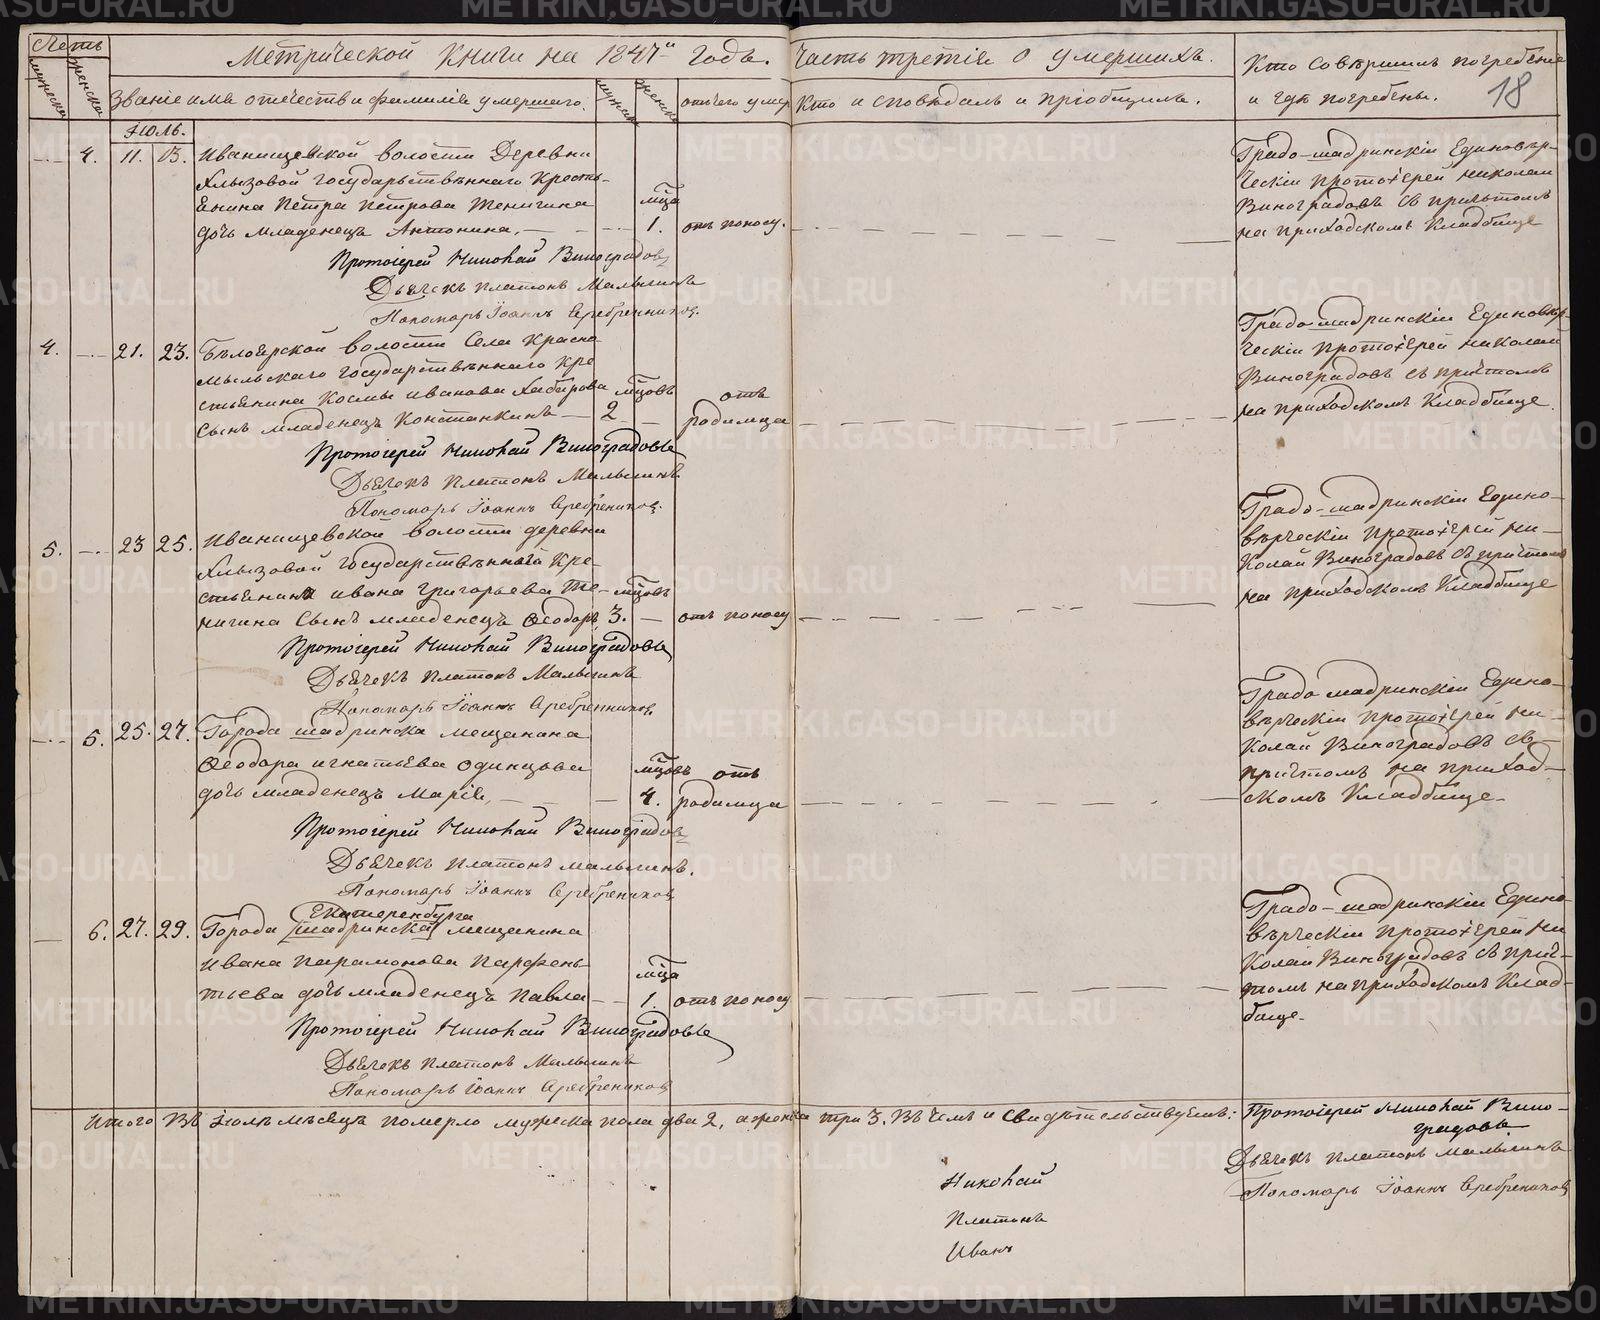 Счетъ
мужеска
женска
Метрической Книги на 1847й годъ.
Часть третія о умершихъ.
Званіе имя отечество и фамилія умершаго.
отъ чего умер
Кто исповѣдалъ и пріобщилъ.
Кто совершилъ погребеніе
и гдѣ погребены.
18
Іюль.
4. 11. 13. Иванищевской волости Деревни
Хлызовой государственнаго кресть-
янина Петра Петрова Тенигина
дочь младенецъ Антонина.
мца
1.
отъ поносу.
Протоіерей Николай Виноградовъ
Дьячекъ Платонъ Малышинъ
Пономарь Іоаннъ Серебренников.
Градо-шадринскій Единовѣр-
ческій протоіерей Николай
Виноградовъ съ причтомъ
на приходскомъ кладбище
4. 21. 23. Бѣлоярской волости Села Красно
мыльскаго государственнаго кре
стьянина Космы Иванова Хабарова
сынъ младенецъ Константинъ
мцовъ
2
отъ
родимца
Протоіерей Николай Виноградовъ
Дьячекъ Платонъ Малышинъ
Пономарь Іоаннъ Серебреников.
Градо шадринскій Единовѣр-
ческій протоіерей Николай
Виноградовъ съ причтомъ
на приходскомъ кладбище.
5. 23 25. Иванищевской волости деревни
Хлызовой государственнаго кре-
стьянина Ивана Григорьева Те-
нигина сынъ младенецъ Ѳеодоръ
мцовъ
3.
отъ поносу
Протоіерей Николай Виноградовъ
Дьячекъ Платонъ Малышинъ
Пономарь Іоаннъ Серебренников
Градо-шадринскій Едино-
вѣрческій протоіерей Ни-
колай Виноградовъ съ причтомъ
на приходскомъ кладбище
5. 25. 27. Города шадринска мещанина
Ѳеодора Игнатьева Одинцова
дочь младенецъ Марія,
мцовъ
4.
отъ
родимца
Протоіерей Николай Виноградов
Дьячекъ Платонъ Малышинъ.
Пономарь Іоаннъ Серебреников
Градо шадринскій Едино-
вѣрческій протоіерей Ни-
колай Виноградовъ съ
причтомъ на приход-
скомъ кладбище
6. 27. 29. Города (шадринска) мещанина
Екатеренбурга
Ивана Парамонова Парфень-
тьева дочь младенецъ Павла
мца
1.
отъ поносу
Протоіерей Николай Виноградовъ
Дьячекъ Платонъ Малышинъ
Пономарь Іоаннъ Серебреников
Градо-шадринскій Едино-
вѣрческій протоіерей Ни
колай Виноградовъ съ прич-
томъ на приходскомъ клад-
бище.
Итого въ Іюлѣ мѣсяцѣ померло мужеска пола два 2, а женска три 3. Въ чемъ и свидѣтельствуемъ:
Протоіерей Николай Вино-
градовъ
Дьячекъ Платонъ Малышинъ
Пономарь Іоаннъ Серебреников
Николай
Платонъ
Иванъ
METRIKI.GASO-URAL.RU